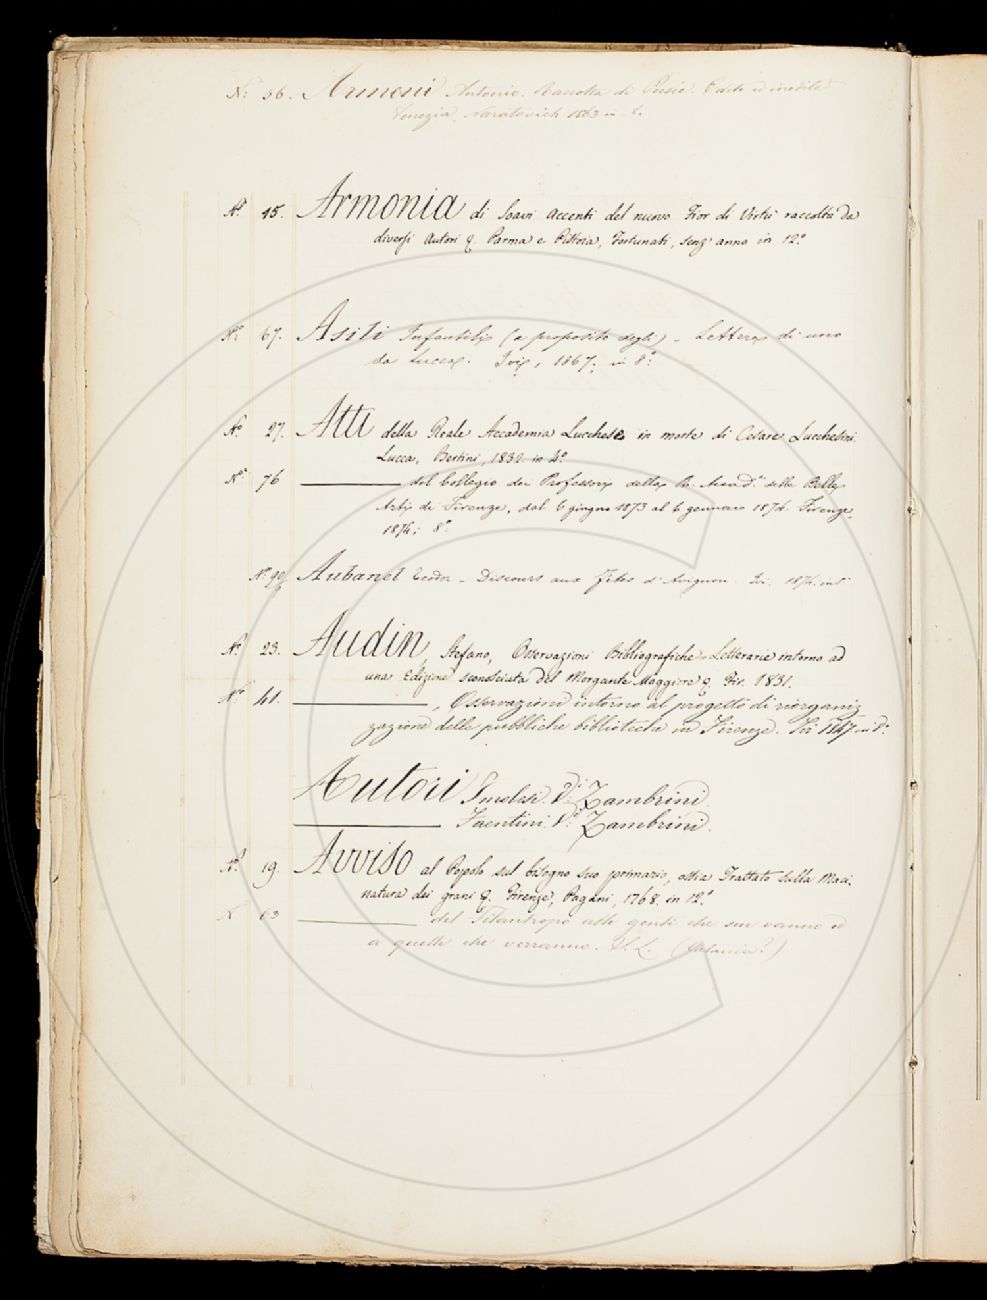 Nº 56. Armeni Antonio. Raccolta di Poesie. Edite ed inedite
Venezia, Naratovich 1863 in 8.
Nº 45. Armonia di Soavi Accenti del nuovo Fior di Virtù raccolti da
diversi Autori &. Parma e Pistoia, Fortunati, senz' anno in 12.º
Nº 67. Asili Infantili (a proposito degli) - Lettera di uno
da Lucca. Ivi, 1867; in 8º.
Nº 27. Atti della Reale Accademia Lucchese in morte di Cesare Lucchesini.
Lucca, Bertini, 1832 in 4º
Nº 76 ——— del Collegio dei Professori della R. Accad.ª delle Belle
Arti di Firenze, dal 6 giugno 1873 al 6 gennaro 1874. Firenze,
1874; 8º.
Nº 90 Aubanel Teodor - Discours aux d'Avignon. Ivi. 1874. in 8º
Nº 23. Audin, Stefano, Osservazioni Bibliografiche-Letterarie intorno ad
una Edizione sconosciuta del Morgante Maggiore &. Fir. 1831.
Nº 41. ———, Osservazioni intorno al progetto di riorganiz
zazione delle pubbliche biblioteche in Firenze. Fir 1847 in 8º
Autori Imolesi. Vdi Zambrini.
——— Faentini. Vdi Zambrini.
Nº 19. Avviso al Popolo sul bisogno suo primario, ossia Trattato sulla Maci-
natura dei grani &. Firenze, Pagani, 1768. in 12.º
Nº 63 ——— del Filantropo alle genti che sen vanno ed
a quelle che verranno. S. L. (Catania?)